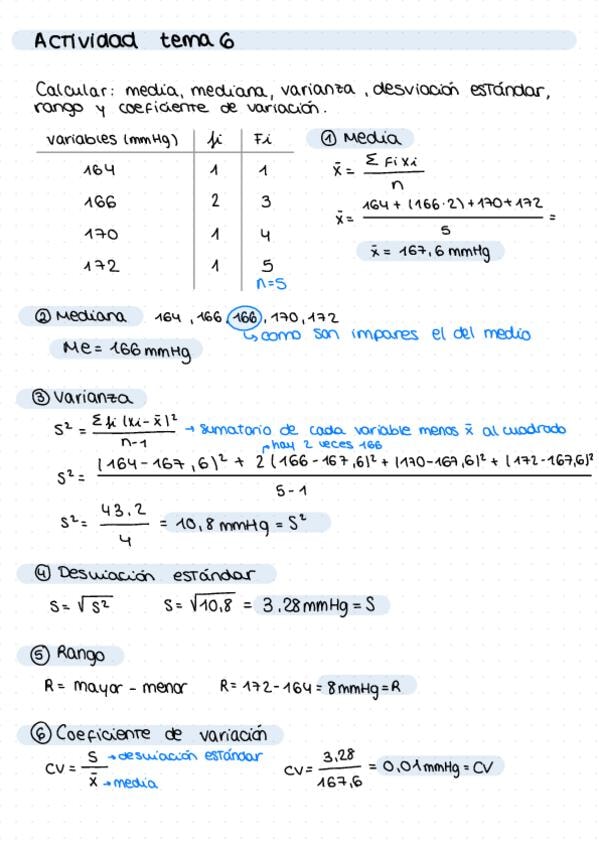 Actividad tema 6
Calcular: media, mediana, varianza, desviación estándar,
rango y coeficiente de variación.
variables (mmHg) fi Fi
164 1 1
166 2 3
170 1 4
172 1 5
n=5
① Media
x̄ = Σ Fi xi / n
x̄ = 164 + (166·2) + 170 + 172 / 5 =
x̄ = 167,6 mmHg
② Mediana 164, 166, 166, 170, 172
↳ como son impares el del medio
Me = 166 mmHg
③ Varianza
S² = Σ fi (xi - x̄)² / n-1 → sumatorio de cada variable menos x̄ al cuadrado
hay 2 veces 166
S² = (164-167,6)² + 2(166-167,6)² + (170-167,6)² + (172-167,6)² / 5-1
S² = 43,2 / 4 = 10,8 mmHg = S²
④ Desviación estándar
S = √S² S = √10,8 = 3,28 mmHg = S
⑤ Rango
R = mayor - menor R = 172 - 164 = 8 mmHg = R
⑥ Coeficiente de variación
CV = S / x̄ → desviación estándar → media CV = 3,28 / 167,6 = 0,01 mmHg = CV